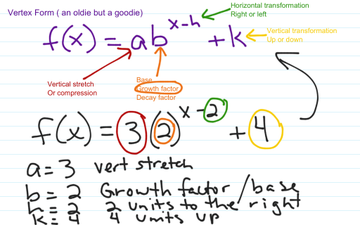 Vertex Form ( an oldie but a goodie)
Horizontal transformation
Right or left
f(x) = ab^(x-h) + k
Vertical transformation
Up or down
Vertical stretch
Or compression
Base
Growth factor
Decay factor
f(x) = 3(2)^(x-2) + 4
a = 3 vert stretch
b = 2 Growth factor/base
h = 2 2 units to the right
k = 4 4 units up